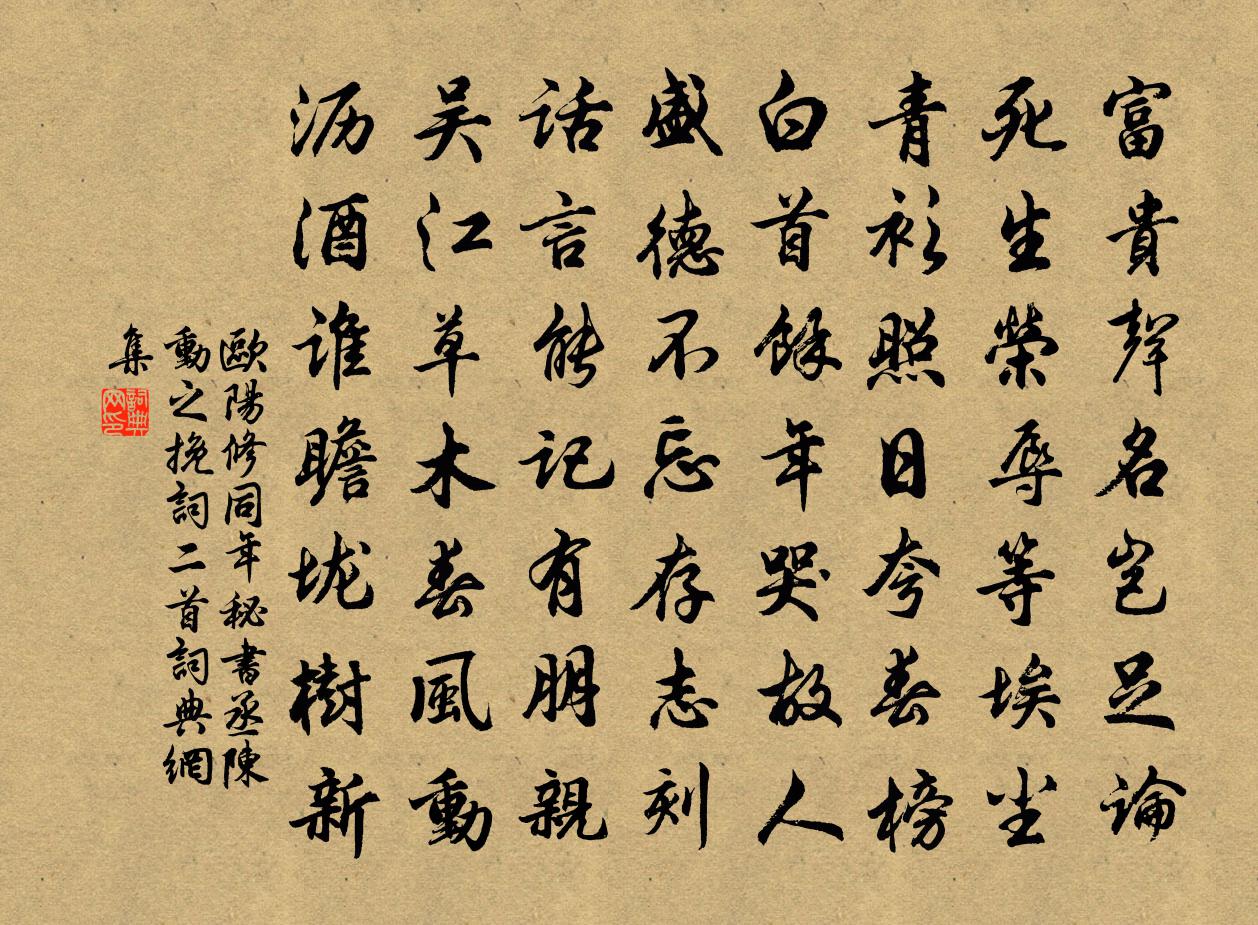 富貴聲名岂足論
死生榮辱等埃尘
青衫照日夸春榜
白首餘年哭故人
盛德不忘存志刻
话言能记有朋親
吴江草木春風動
沥酒谁瞻垅樹新
歐陽修同年秘書丞陳
動之挽詞二首詞典網
集
詞典
网印